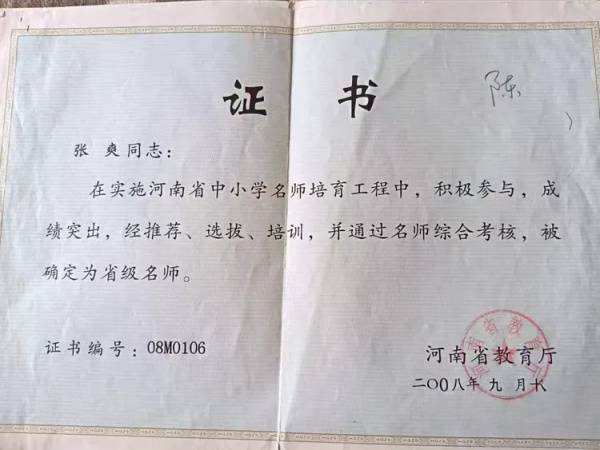 证 书
陈
张 爽同志：
在实施河南省中小学名师培育工程中，积极参与，成
绩突出，经推荐、选拔、培训，并通过名师综合考核，被
确定为省级名师。
证书编号：08M0106
河南省教育厅
河南省教育厅
二〇〇八年 九 月